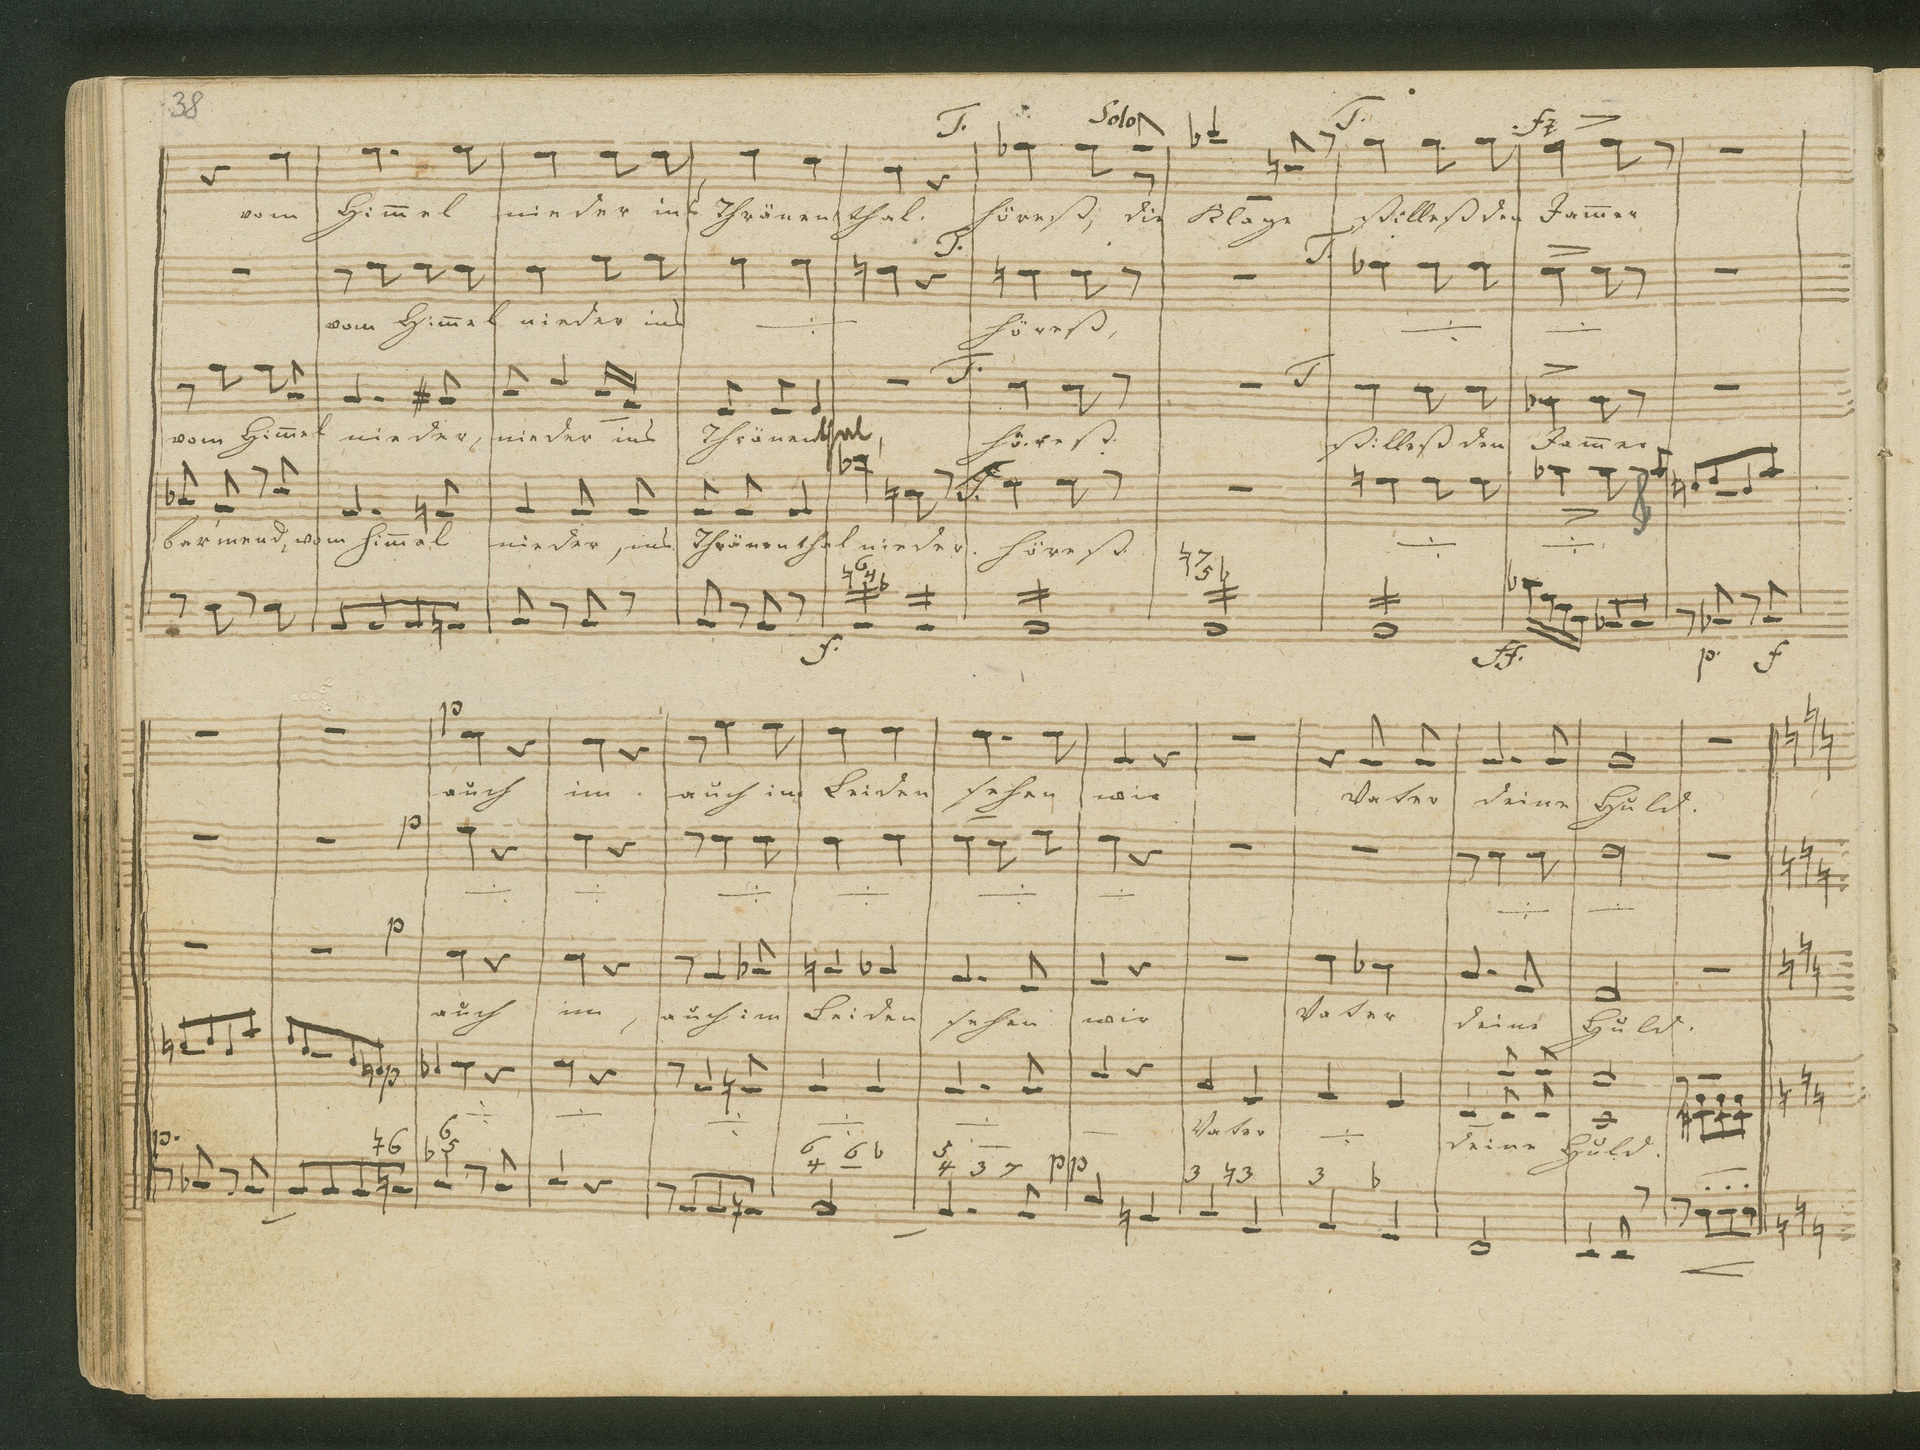 38
T. Solo T. fz
vom Him̅el nieder ins Thränenthal. hörest, die Klage stillest den Jam̅er
T. T.
vom Him̅el nieder ins hörest,
T. T
vom Him̅el nieder, nieder ins Thränenthal, hörest. stillest den Jam̅er
T.
barmend, vom Him̅el nieder, ins Thränenthal nieder. hörest
f. ff. p. f
p
auch im. auch im Leiden sehen wir Vater deine Huld.
p
p
auch im, auch im Leiden sehen wir Vater deine Huld.
p
Vater deine Huld.
p. 76 6 5 6 4 6 5 4 3 7 pp 3 73 3